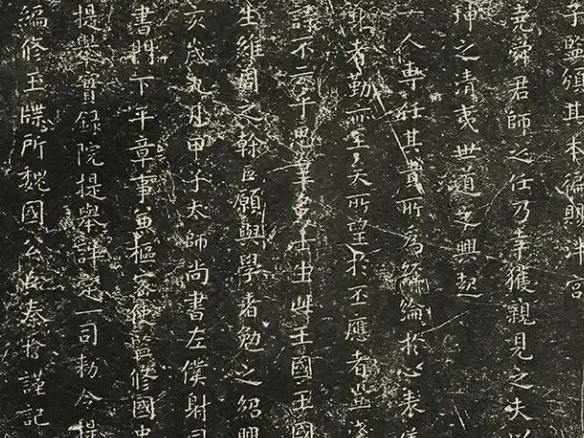 堯舜君師之任乃幸獲親見之夫以
紳之清夷世道之興起
一人專任其責所為經綸於心表
者勤亦至矣所望於丕應者豈淺
詩不云乎思皇多士生此王國王國
生維周之翰臣願與學者勉之紹興
亥歲九月甲子太師尚書左僕射同
書門下平章事兼樞密使監修國史
提舉實録院提舉詳定一司勑令提
編修玉牒所魏國公臣秦檜謹記